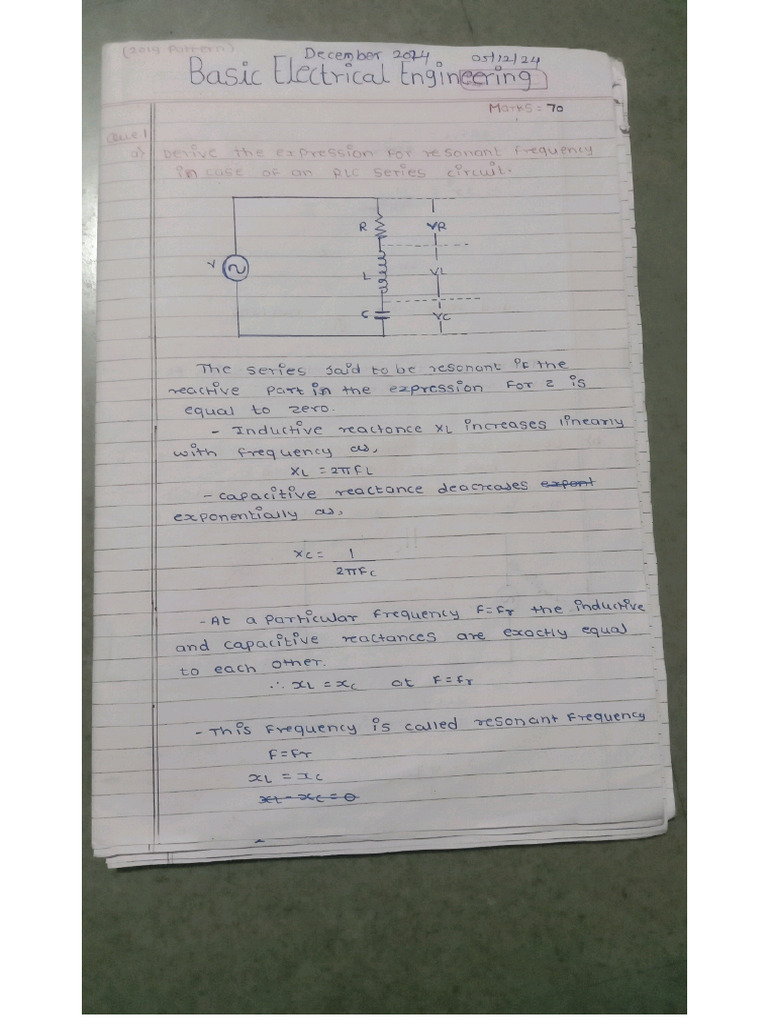 (2019 Pattern)
December 2024 05/12/24
Basic Electrical Engineering
Marks = 70
Que 1
a) Derive the expression for resonant frequency
in case of an RLC series circuit.
R VR
V
L VL
C VC
The series said to be resonant if the
reactive part in the expression for z is
equal to zero.
- Inductive reactance XL increases linearly
with frequency as,
XL = 2πFL
- capacitive reactance deacreases expont
exponentially as,
XC = 1
2πFC
- At a particular frequency F=Fr the inductive
and capacitive reactances are exactly equal
to each other.
∴ XL = XC at F=Fr
- This frequency is called resonant frequency
F=Fr
XL = XC
XL - XC = 0